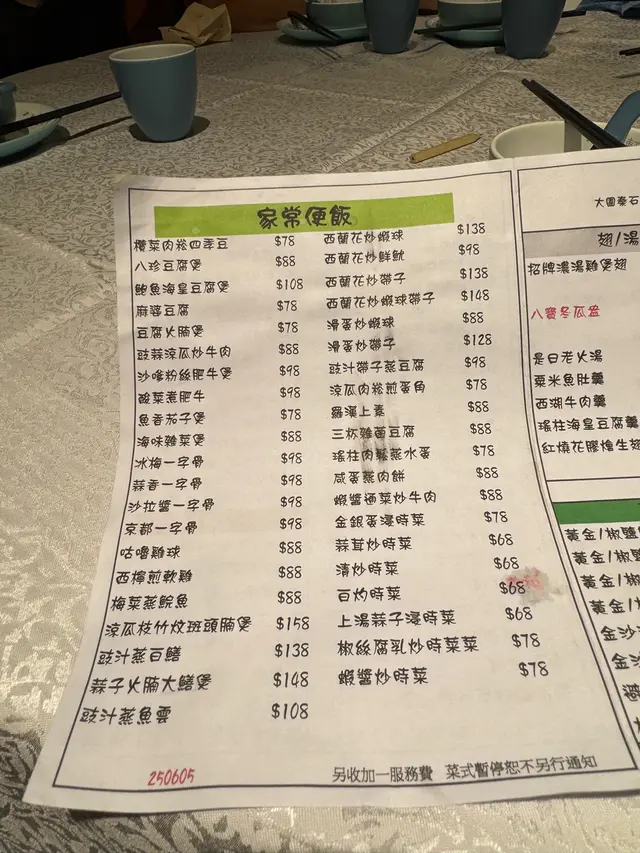 家常便飯
欖菜肉崧四季豆 $78
八珍豆腐煲 $88
鮑魚海皇豆腐煲 $108
麻婆豆腐 $78
豆腐火腩煲 $78
豉蒜涼瓜炒牛肉 $88
沙嗲粉絲肥牛煲 $98
酸菜煮肥牛 $98
魚香茄子煲 $78
海味雜菜煲 $88
冰梅一字骨 $98
蒜香一字骨 $98
沙拉醬一字骨 $98
京都一字骨 $98
咕嚕雞球 $88
西檸煎軟雞 $88
梅菜蒸鯇魚 $88
涼瓜枝竹炆班頭腩煲 $158
豉汁蒸白鱔 $138
蒜子火腩大鱔煲 $148
豉汁蒸魚雲 $108
西蘭花炒蝦球 $138
西蘭花炒鮮魷 $98
西蘭花炒帶子 $138
西蘭花炒蝦球帶子 $148
滑蛋炒蝦球 $88
滑蛋炒帶子 $128
豉汁帶子蒸豆腐 $98
涼瓜肉崧煎蛋角 $78
羅漢上素 $88
三杯雜菌豆腐 $88
瑤柱肉鬆蒸水蛋 $78
咸蛋蒸肉餅 $88
蝦醬通菜炒牛肉 $88
金銀蛋浸時菜 $78
蒜茸炒時菜 $68
清炒時菜 $68
白灼時菜 $68
上湯蒜子浸時菜 $68
椒絲腐乳炒時菜菜 $78
蝦醬炒時菜 $78
250605
另收加一服務費 菜式暫停恕不另行通知
大圍秦石
翅/湯
招牌濃湯雞煲翅
八寶冬瓜盅
是日老火湯
粟米魚肚羹
西湖牛肉羹
瑤柱海皇豆腐羹
紅燒花膠燴生翅
黃金/椒鹽
黃金/椒鹽
黃金/椒
黃金/
金沙
金沙
避